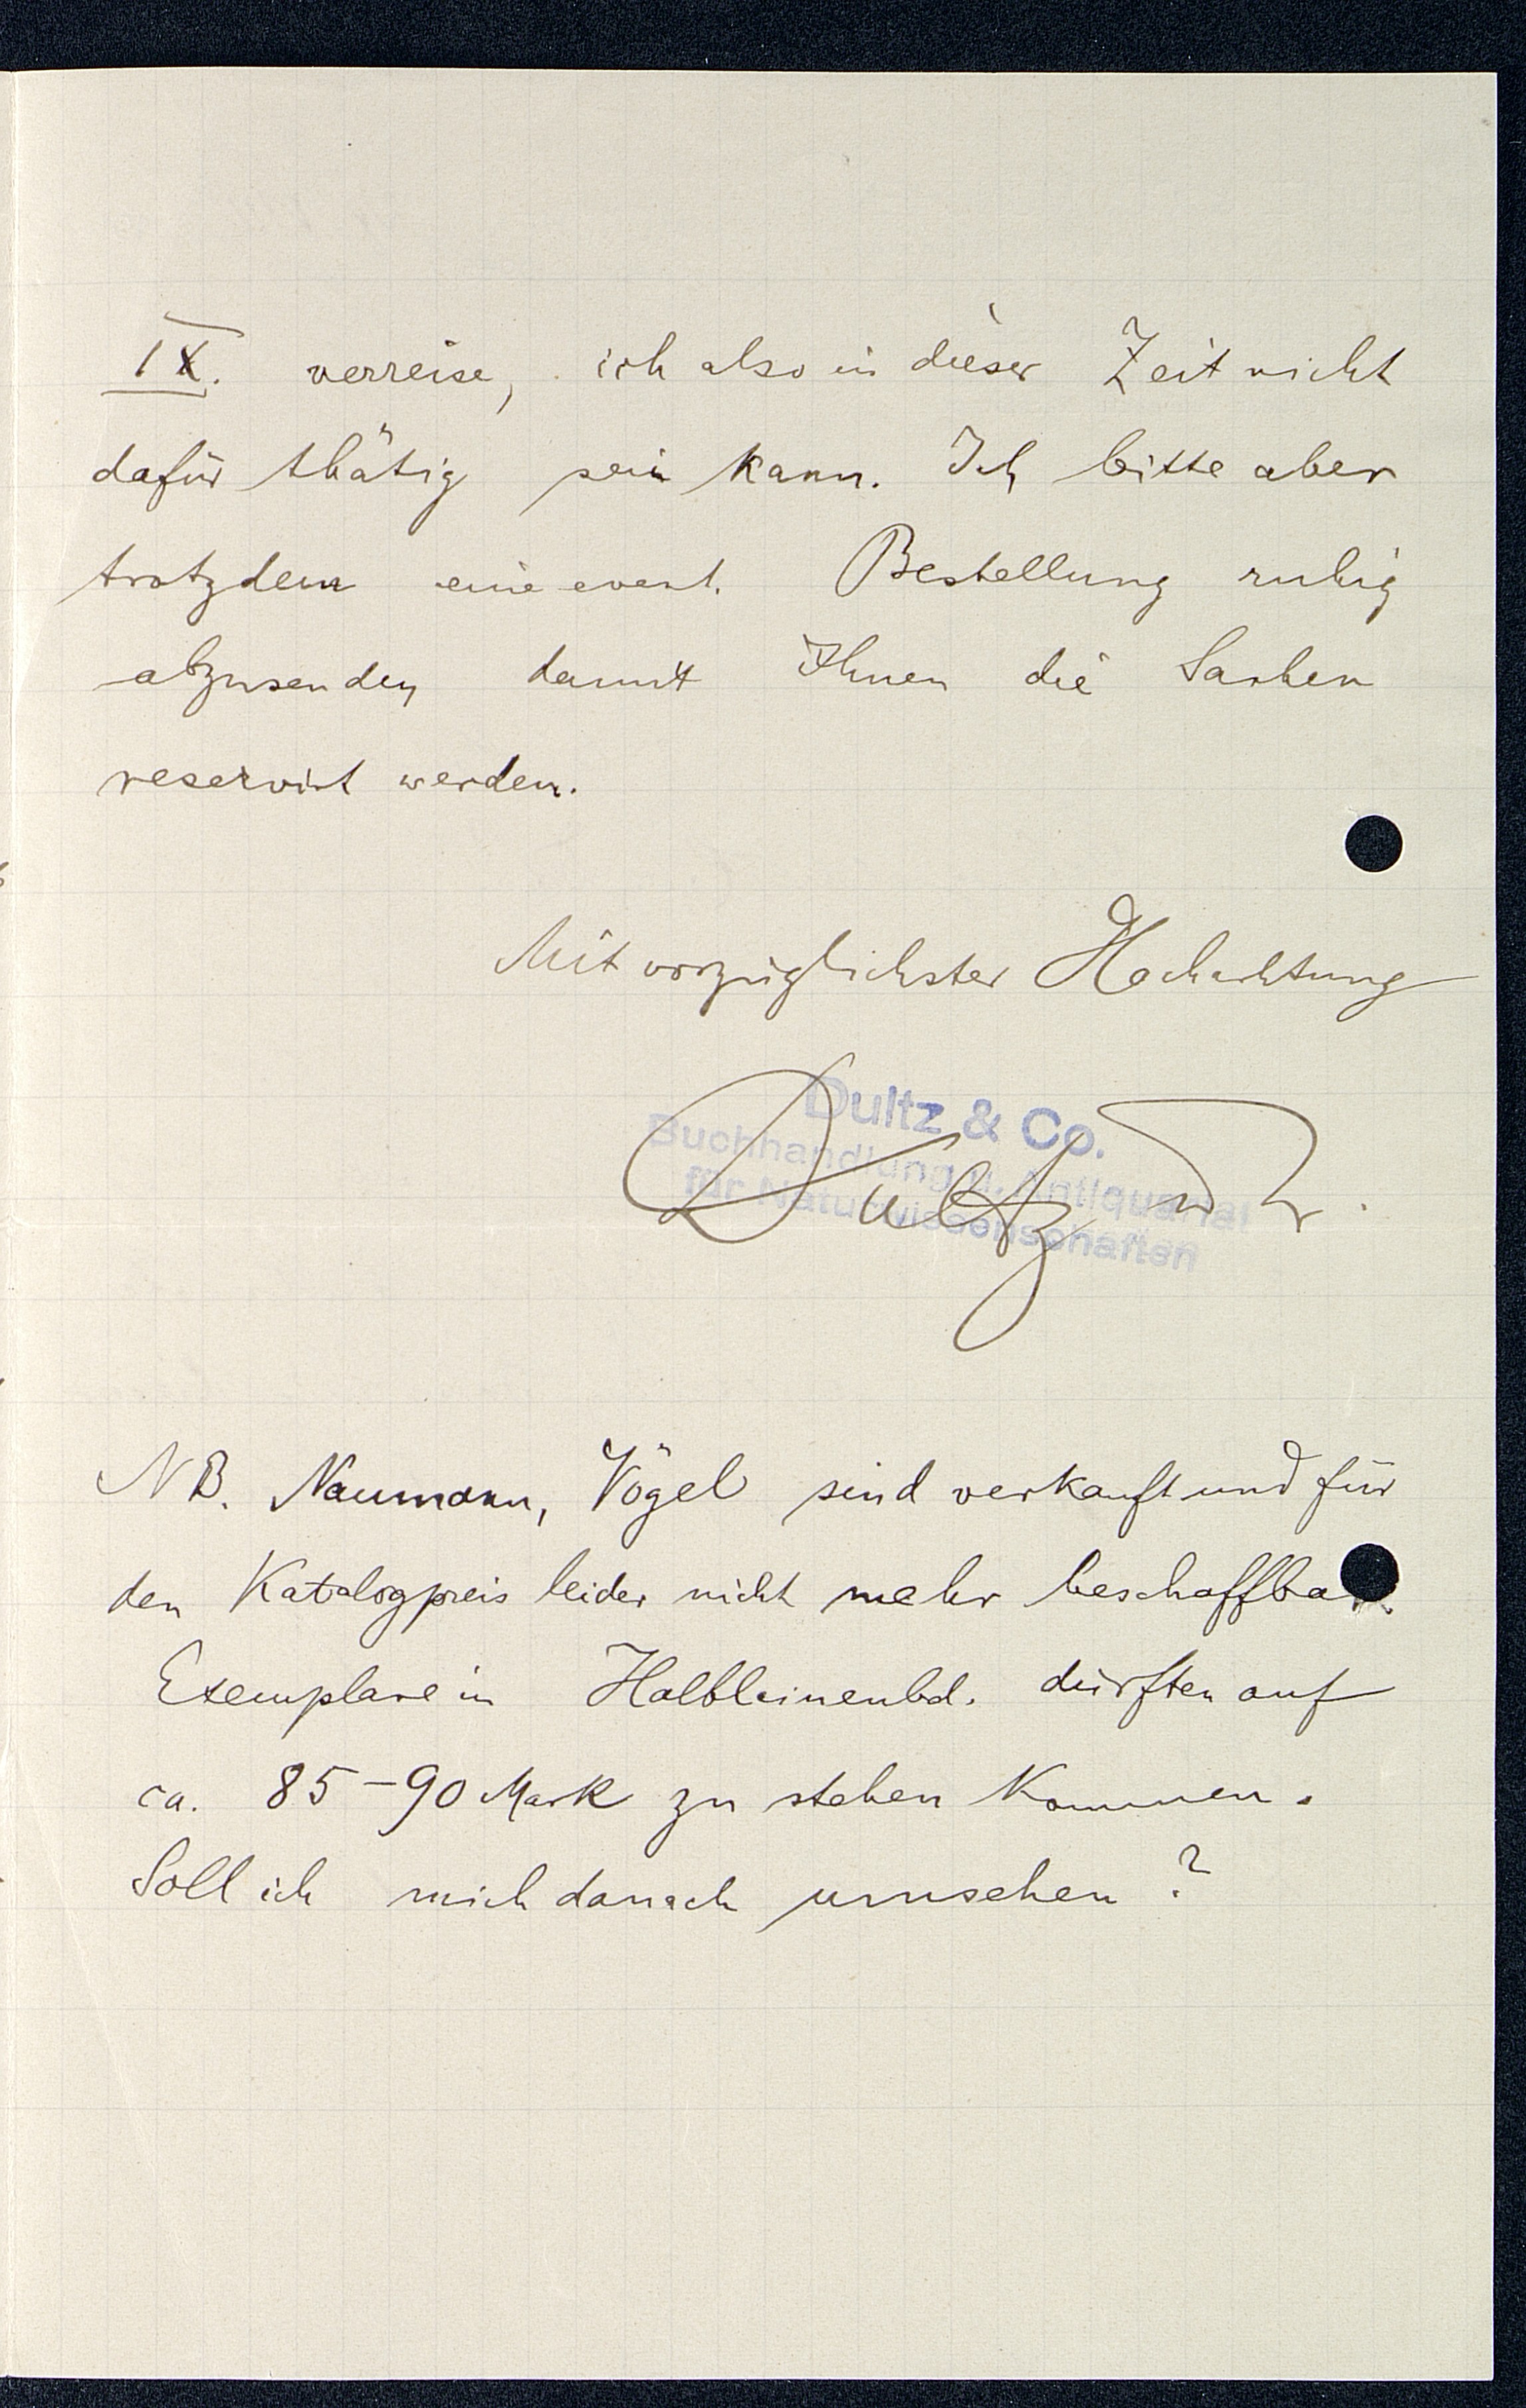 IX. verreise, ich also in dieser Zeit nicht
dafür thätig sein kann. Ich bitte aber
trotzdem eine event. Bestellung ruhig
abzusenden damit Ihnen die Sachen
reservirt werden.
Mit vorzüglichster Hochachtung
Dultz & Co.
Buchhandlung u. Antiquariat
für Naturwissenschaften
Dultz
NB. Naumann, Vögel sind verkauft und für
den Katalogpreis leider nicht mehr beschaffbar.
Exemplare in Halbleinenbd. dürften auf
ca. 85-90 Mark zu stehen kommen.
Soll ich mich danach umsehen?